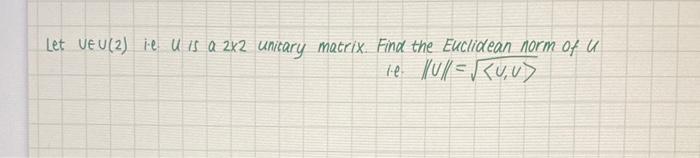 Let U∈U(2) i.e U is a 2x2 unitary matrix. Find the Euclidean norm of U
i.e. ||U|| = √<U,U>